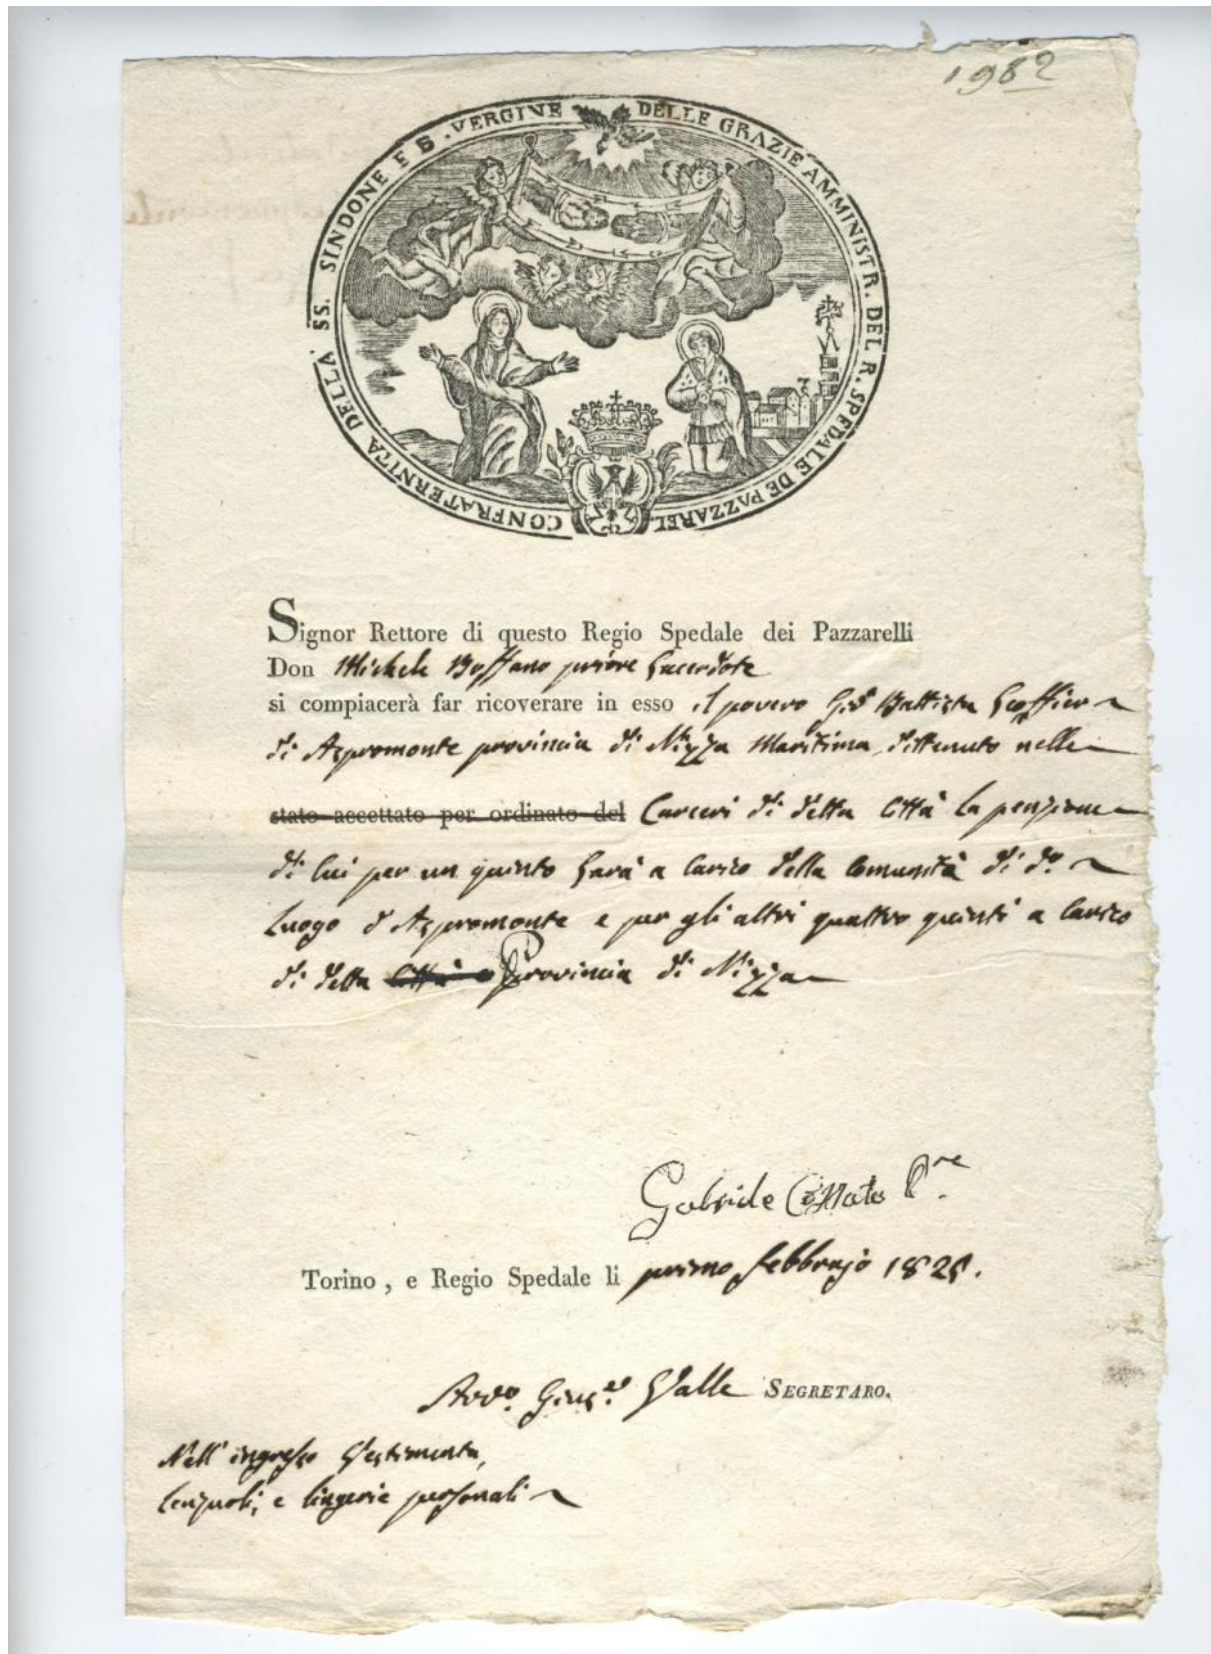 1982
CONFRATERNITA DELLA SS. SINDONE E B. VERGINE DELLE GRAZIE AMMINISTR. DEL R. SPEDALE DE PAZZAREL.
Signor Rettore di questo Regio Spedale dei Pazzarelli
Don Michele Boffano priore Sacerdote
si compiacerà far ricoverare in esso il povero Gio Battista Scoffier
di Aspromonte provincia di Nizza Marittima dittenuto nelle
stato accettato per ordinato del Carceri di detta Città la penzione
di lui per un quinto sarà a carico della Comunità di do.
Luogo d'Aspromonte e per gli altri quattro quinti a carico
di detta Città e Provincia di Nizza
Gabriele
Torino, e Regio Spedale li primo febbrajo 1828.
Valle SEGRETARO.
Nell'ingresso Vestimenta,
lenzuoli, e lingerie personali